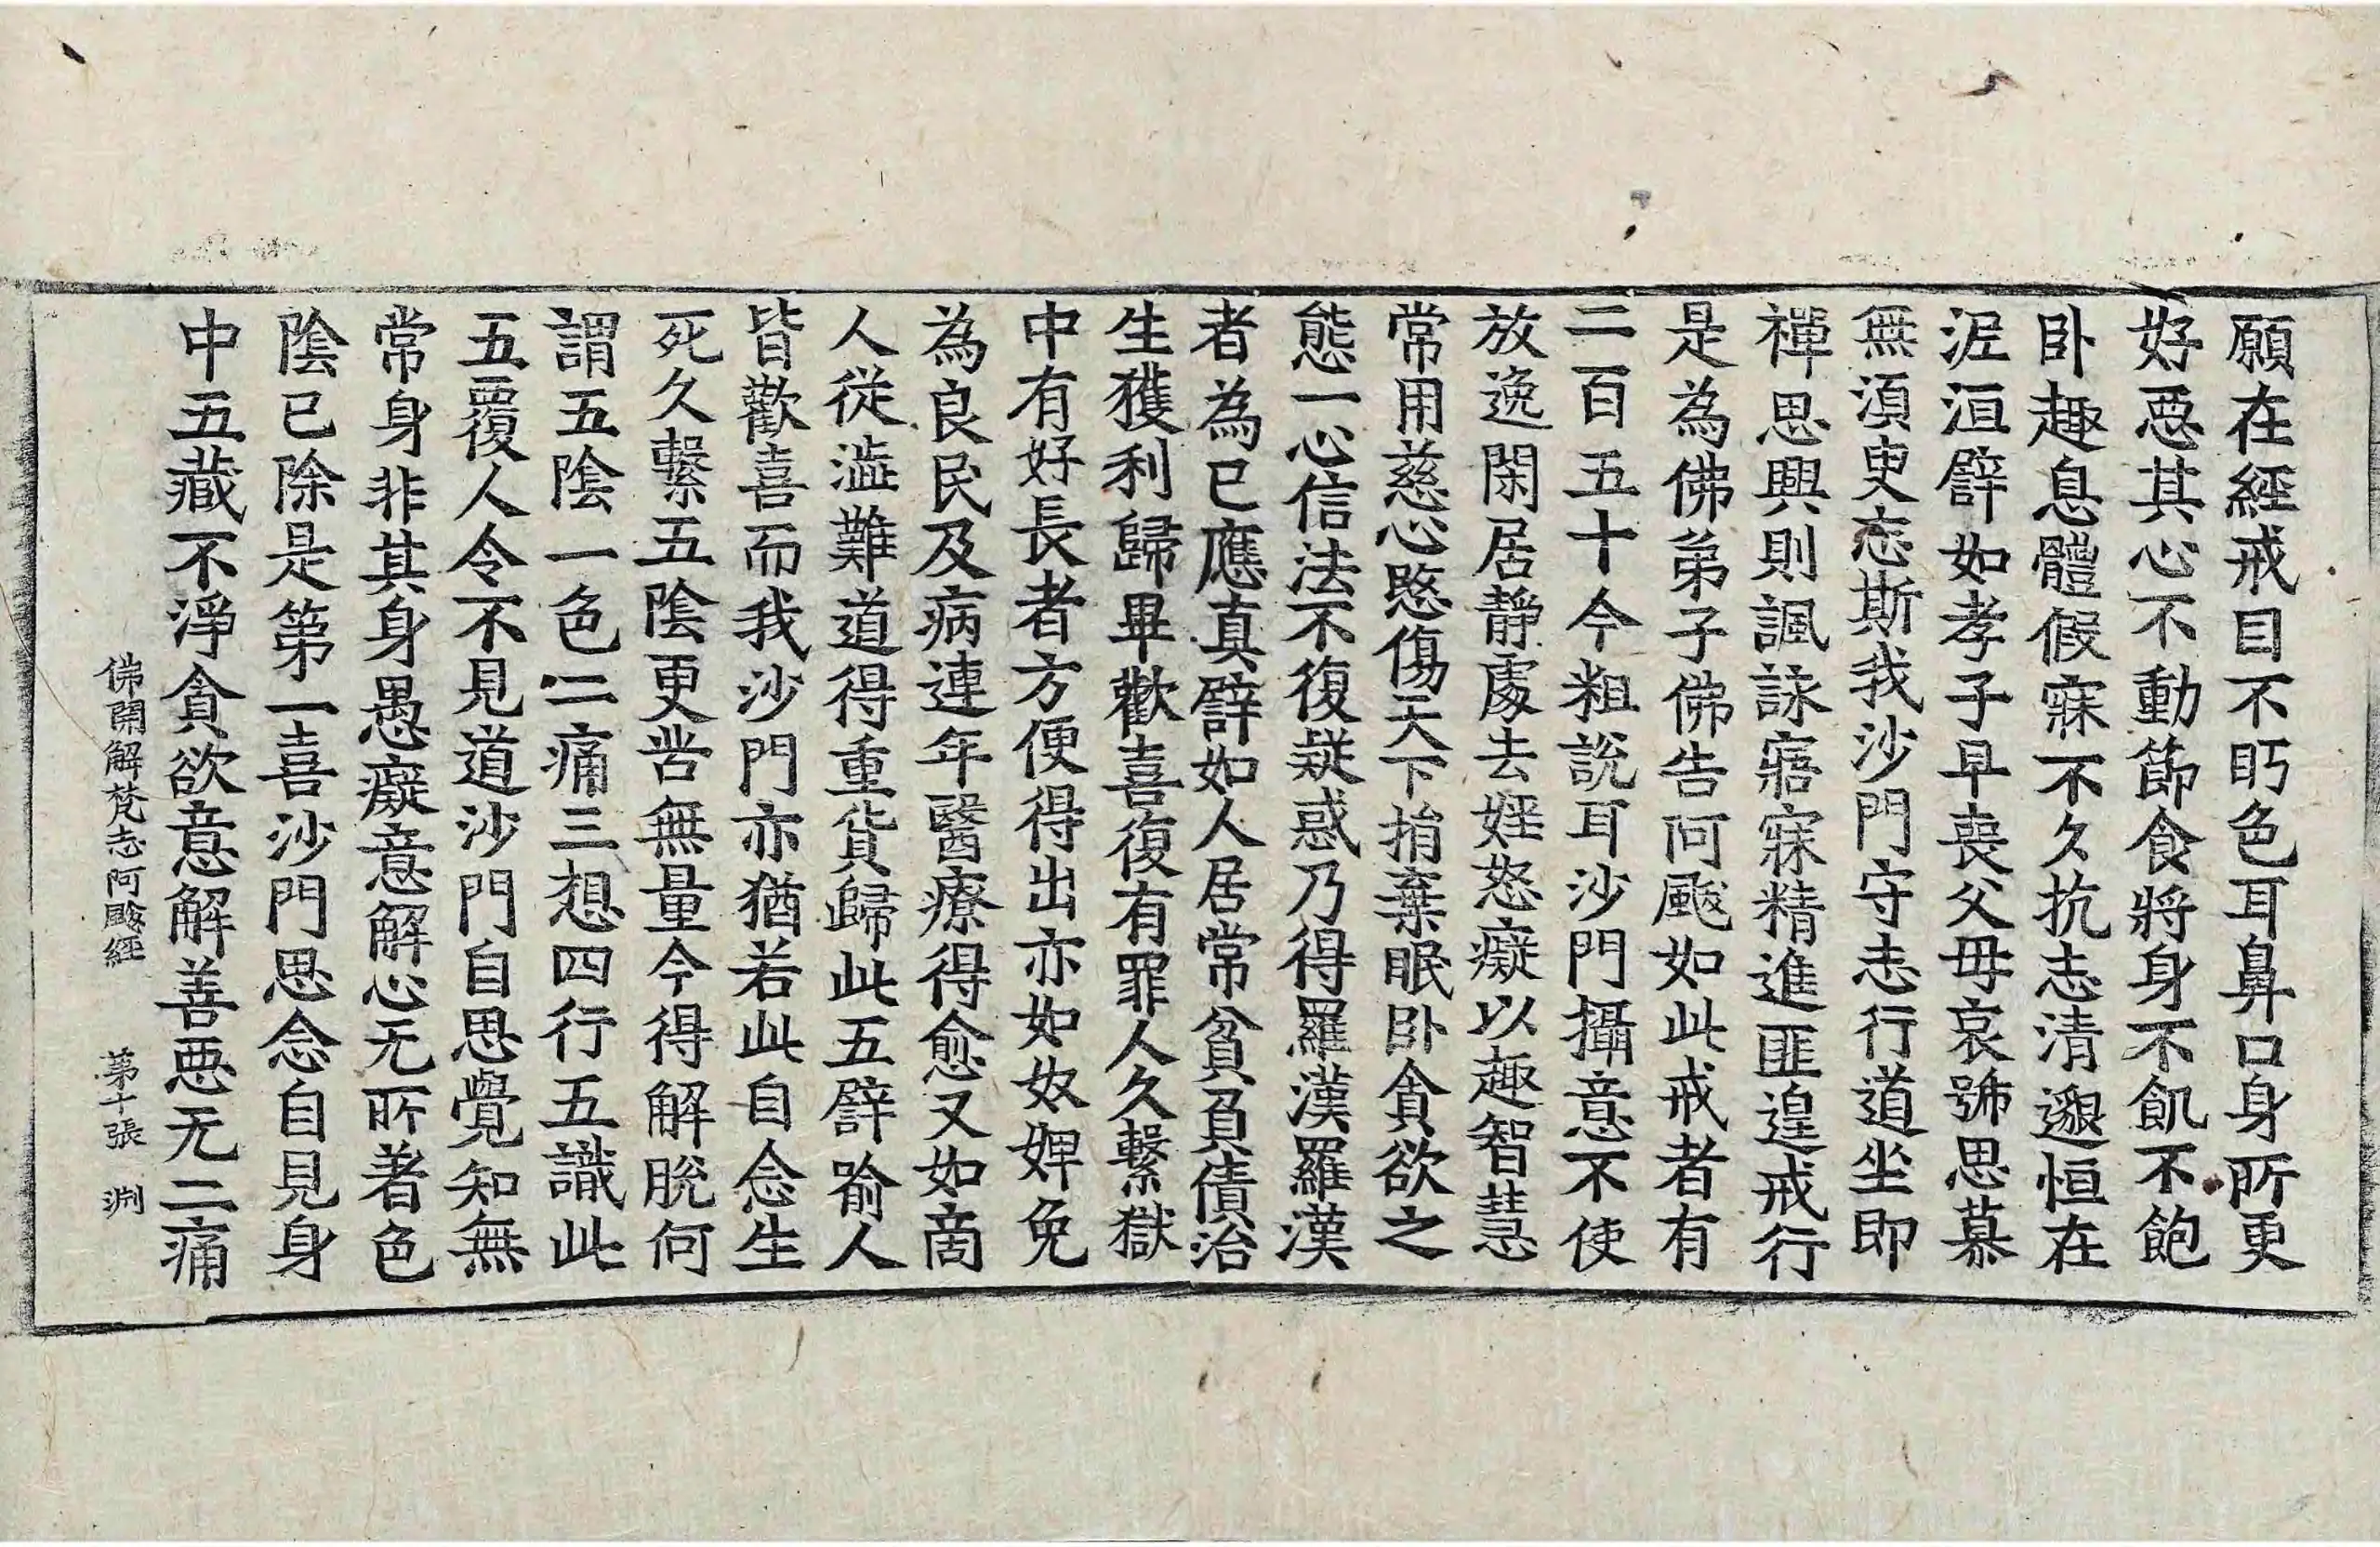 願在經戒目不眄色耳鼻口身所更
好惡其心不動節食將身不飢不飽
卧趣息體假寐不久抗志清邈恒在
泥洹譬如孝子早喪父母哀號思慕
無湏臾忘斯我沙門守志行道坐即
禪思興則諷詠寤寐精進匪遑戒行
是為佛弟子佛告阿颰如此戒者有
二百五十今粗說耳沙門攝意不使
放逸閑居靜處去婬怒癡以趣智慧
常用慈心愍傷天下捐棄眠卧貪欲之
態一心信法不復疑惑乃得羅漢羅漢
者為已應真譬如人居常貧負債治
生獲利歸畢歡喜復有罪人久繫獄
中有好長者方便得出亦如奴婢免
為良民及病連年醫療得愈又如商
人從澁難道得重貨歸此五譬喻人
皆歡喜而我沙門亦猶若此自念生
死久繫五陰更苦無量今得解脫何
謂五陰一色二痛三想四行五識此
五覆人令不見道沙門自思覺知無
常身非其身愚癡意解心无所著色
陰已除是第一喜沙門思念自見身
中五藏不淨貪欲意解善惡无二痛
佛開解梵志阿颰經 第十張 淵